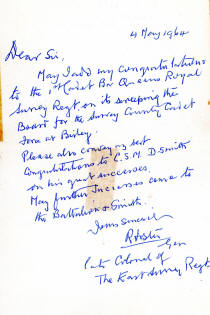 4 May 1964
Dear Sir,
May I add my congratulations
to the 1st Cadet Bn Queens Royal
Surrey Regt on its sweeping the
Board for the Surrey County Cadet
at Bisley.
Please also convey my best
Congratulations to C.S.M. D. Smith
on his great successes.
May further successes come to
the Battalion & Smith.
Yours sincerely
Gen
Colonel of
The East Surrey Regt